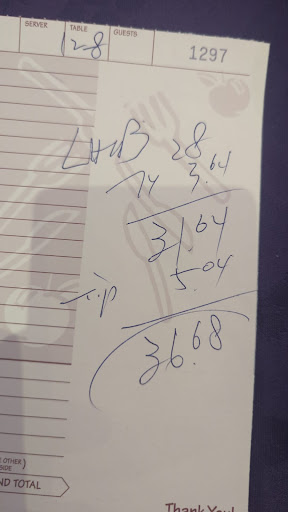 SERVER TABLE GUESTS
128 1297
28
3.64
31.64
Tip 5.04
36.68
OTHER)
SIDE
ND TOTAL
Thank You!